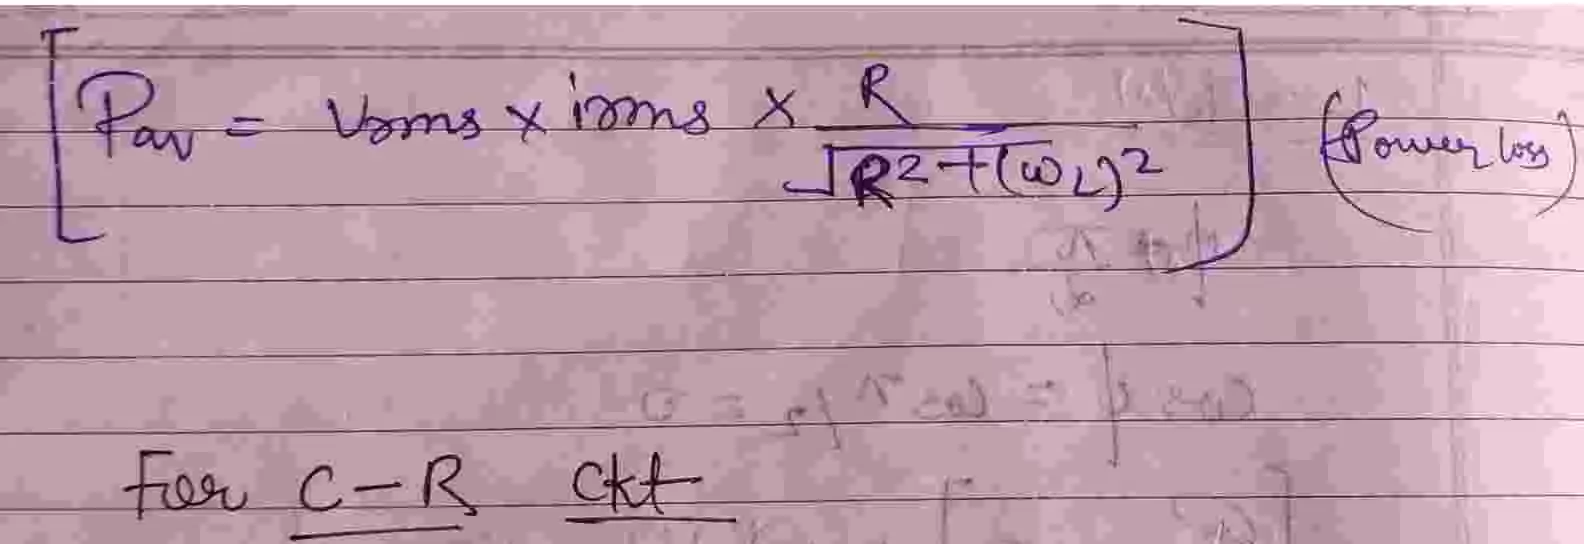 [Pav = Vrms × irms × R / √R² + (ωL)²] (Power loss)
For C-R Ckt